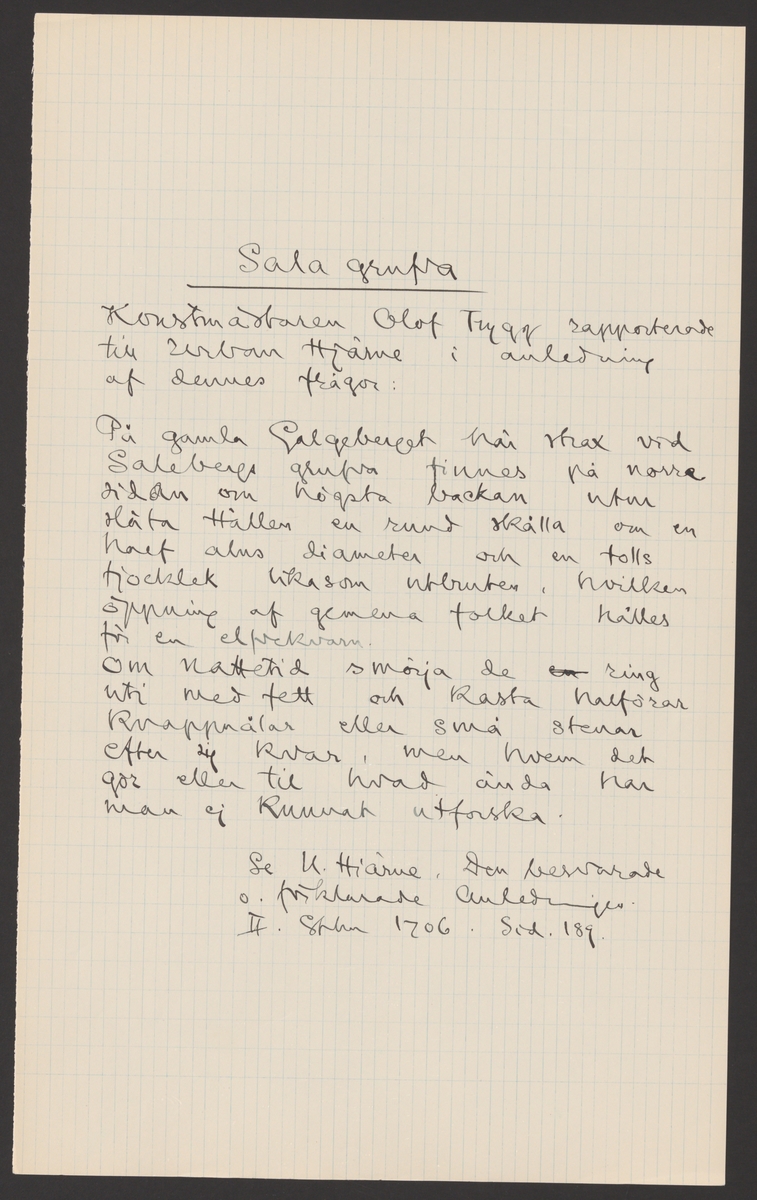 Sala grufva
Konstmästaren Olof Trygg rapporterade
till Urban Hjärne i anledning
af dennes frågor:
På gamla Galgeberget här strax vid
Salebergs grufva finnes på norra
siddan om högsta backan utur
släta Hällen en rund skålla om en
half alns diameter och en tolls
tjocklek likasom utbruten, hvilken
öppning af gemena folket hålles
för en elfvekvarn.
Om Nattetid smörja de en ring
uti med fett och kasta halförar
knappnålar eller små stenar
efter sig kvar, men hvem det
gör eller til hvad ända har
man ej kunnat utforska.
Se U. Hiärne, Den besvarade
o. förklarade Anledningen.
II. Sthlm 1706. Sid. 189.